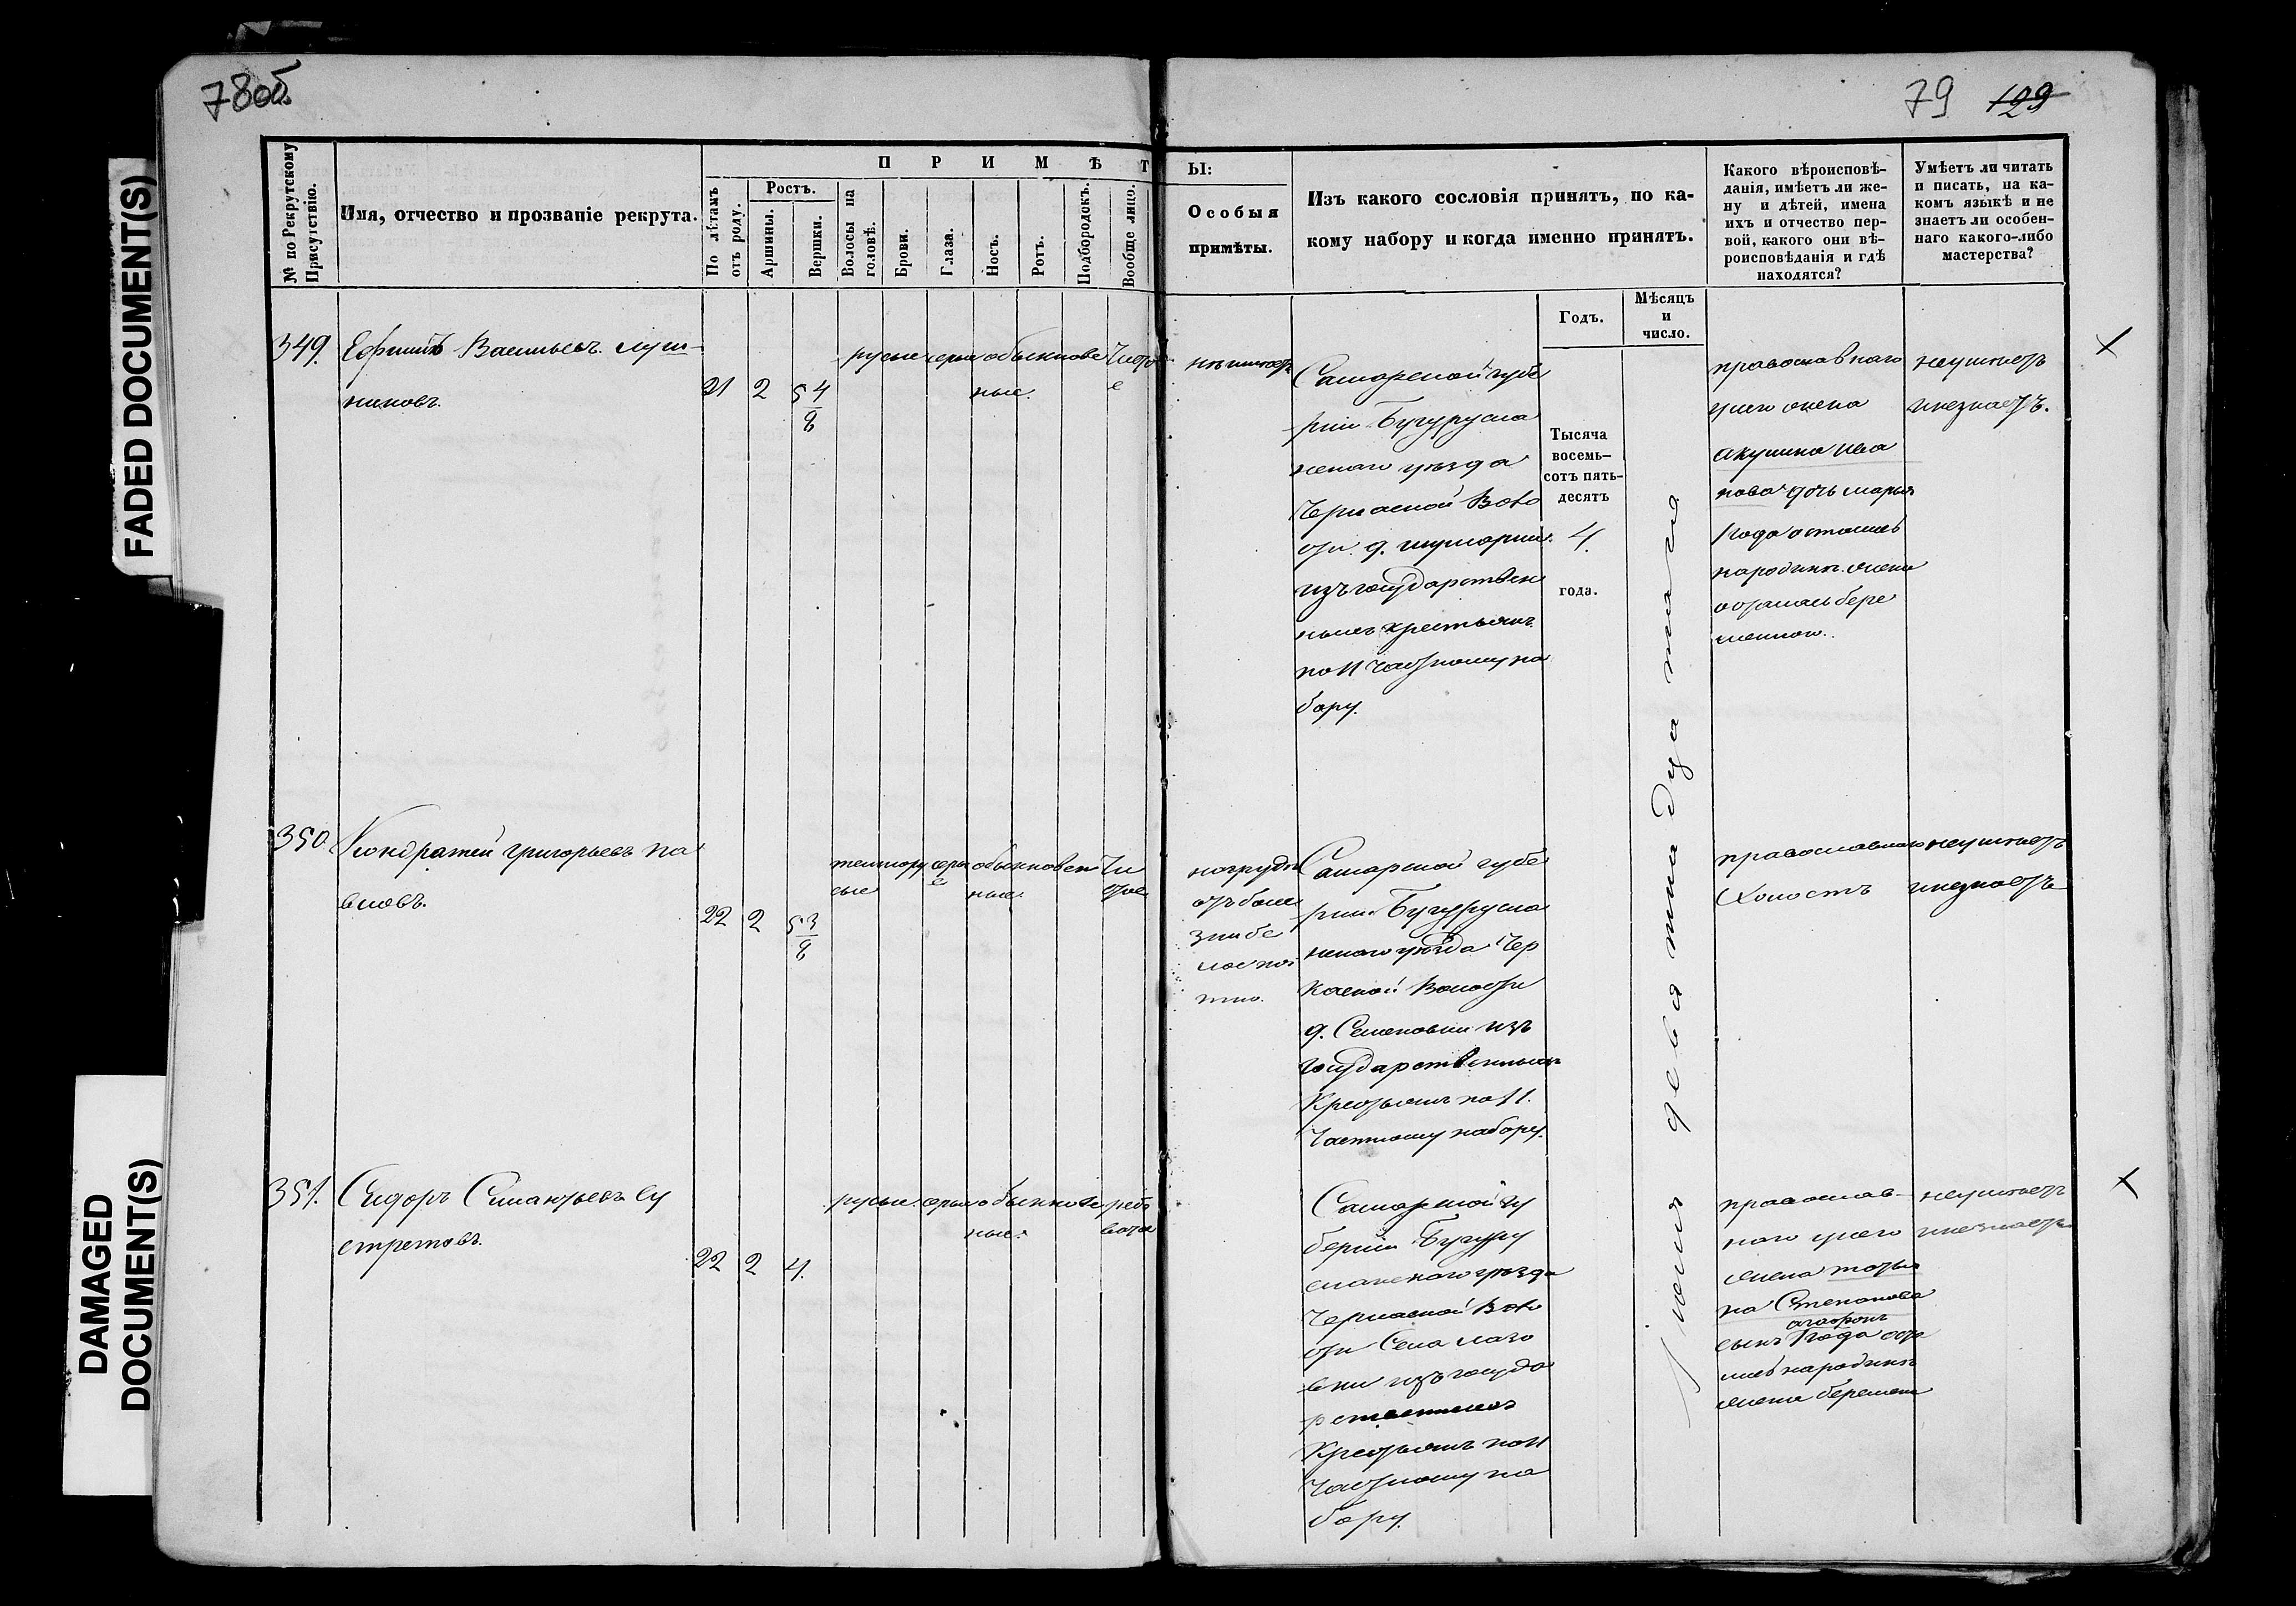 78об.
79 129
FADED DOCUMENT(S)
DAMAGED
DOCUMENT(S)
№ по Рекрутскому
Присутствію.
Имя, отчество и прозваніе рекрута.
ПРИМѢТ
Ы:
По лѣтамъ
отъ роду.
Ростъ.
Аршины.
Вершки.
Волосы на
головѣ.
Брови.
Глаза.
Носъ.
Ротъ.
Подбородокъ.
Вообще лицо.
Особыя
примѣты.
Изъ какого сословія принятъ, по ка-
кому набору и когда именно принятъ.
Годъ.
Мѣсяцъ
и
число.
Какого вѣроисповѣ-
данія, имѣетъ ли же-
ну и дѣтей, имена
ихъ и отчество пер-
вой, какого они вѣ-
роисповѣданія и гдѣ
находятся?
Умѣетъ ли читать
и писать, на ка-
комъ языкѣ и не
знаетъ ли особен-
наго какого-либо
мастерства?
Тысяча
восемь-
сотъ пять-
десятъ
4.
года.
Іюля девятнадцатаго
349.
Ефимъ Васильевъ
никовъ.
21 2 5 4/8
русые серые обыкнове
ные.
чисто
е
неимѣетъ
Самарской губе
рніи Бугурусла
нского уѣзда
Черкаской Воло
сти д.
изъ государствен
ныхъ крестьянъ
по 11 частному на
бору.
православнаго
у него жена
Акулина Ива
нова дочь Марья
1 года остались
народинѣ жена
осталась бере
менною.
неумѣетъ
инезнаетъ.
350
Кондратей Григорьевъ Па
вловъ.
22 2 5 3/8
темнору
сые
серы
е
обыкновен
ные.
чи
стое
нагруди
отъ боле
зни бе
лое пя
тно.
Самарской губе
рніи Бугурусла
нского уѣзда Чер
каской Волости
д. Семеновки изъ
государственныхъ
Крестьянъ по 11.
Частному набору.
православнаго
Холостъ
неумѣетъ
инезнаетъ
351.
Сидоръ Силантьевъ Су
стретовъ.
22 2 4.
русые. серые обыкнове
ные.
рябо
ватое
Самарской гу
берніи Бугуру
сланского уѣзда
Черкаской Воло
сти Села
вки изъ госуда
рственныхъ
Крестьянъ по 11
Частному на
бору.
православ-
ного у него
жена Татья
на Степанова
агафонъ
сынъ 1 года оста
лись народинѣ
жена беремен
неумѣетъ
инезнаетъ